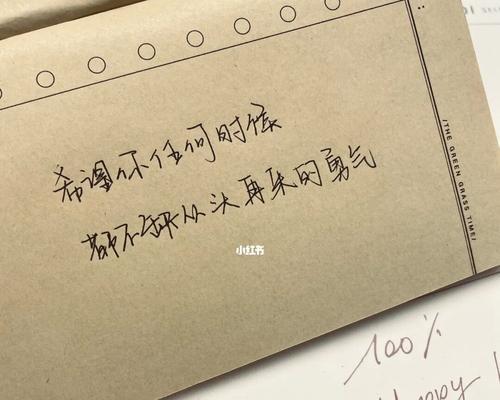 希望你任何时候
都不缺从头再来的勇气
小红书
/THE GREEN GRASS TIME/
100%
Happy